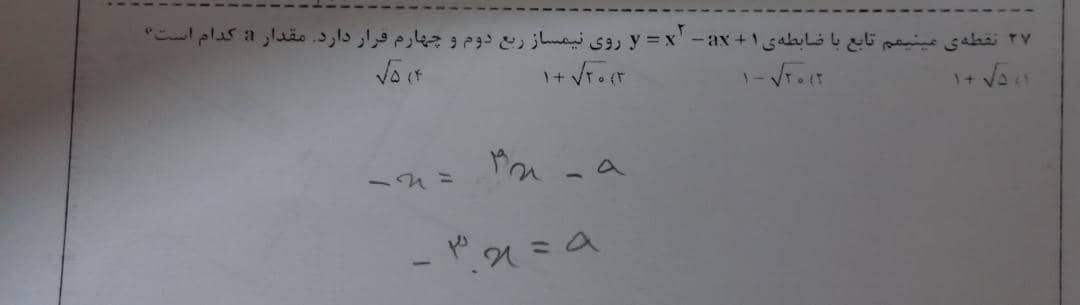 ۲۷ نقطه‌ی مینیمم تابع با ضابطه‌ی y = x² − ax + ۱ روی نیمساز ربع دوم و چهارم قرار دارد. مقدار a کدام است؟
۱) ۱+√۵ ۲) ۱−√۲۰ ۳) ۱+√۲۰ ۴) √۵
−x = ۲x − a
−۳x = a